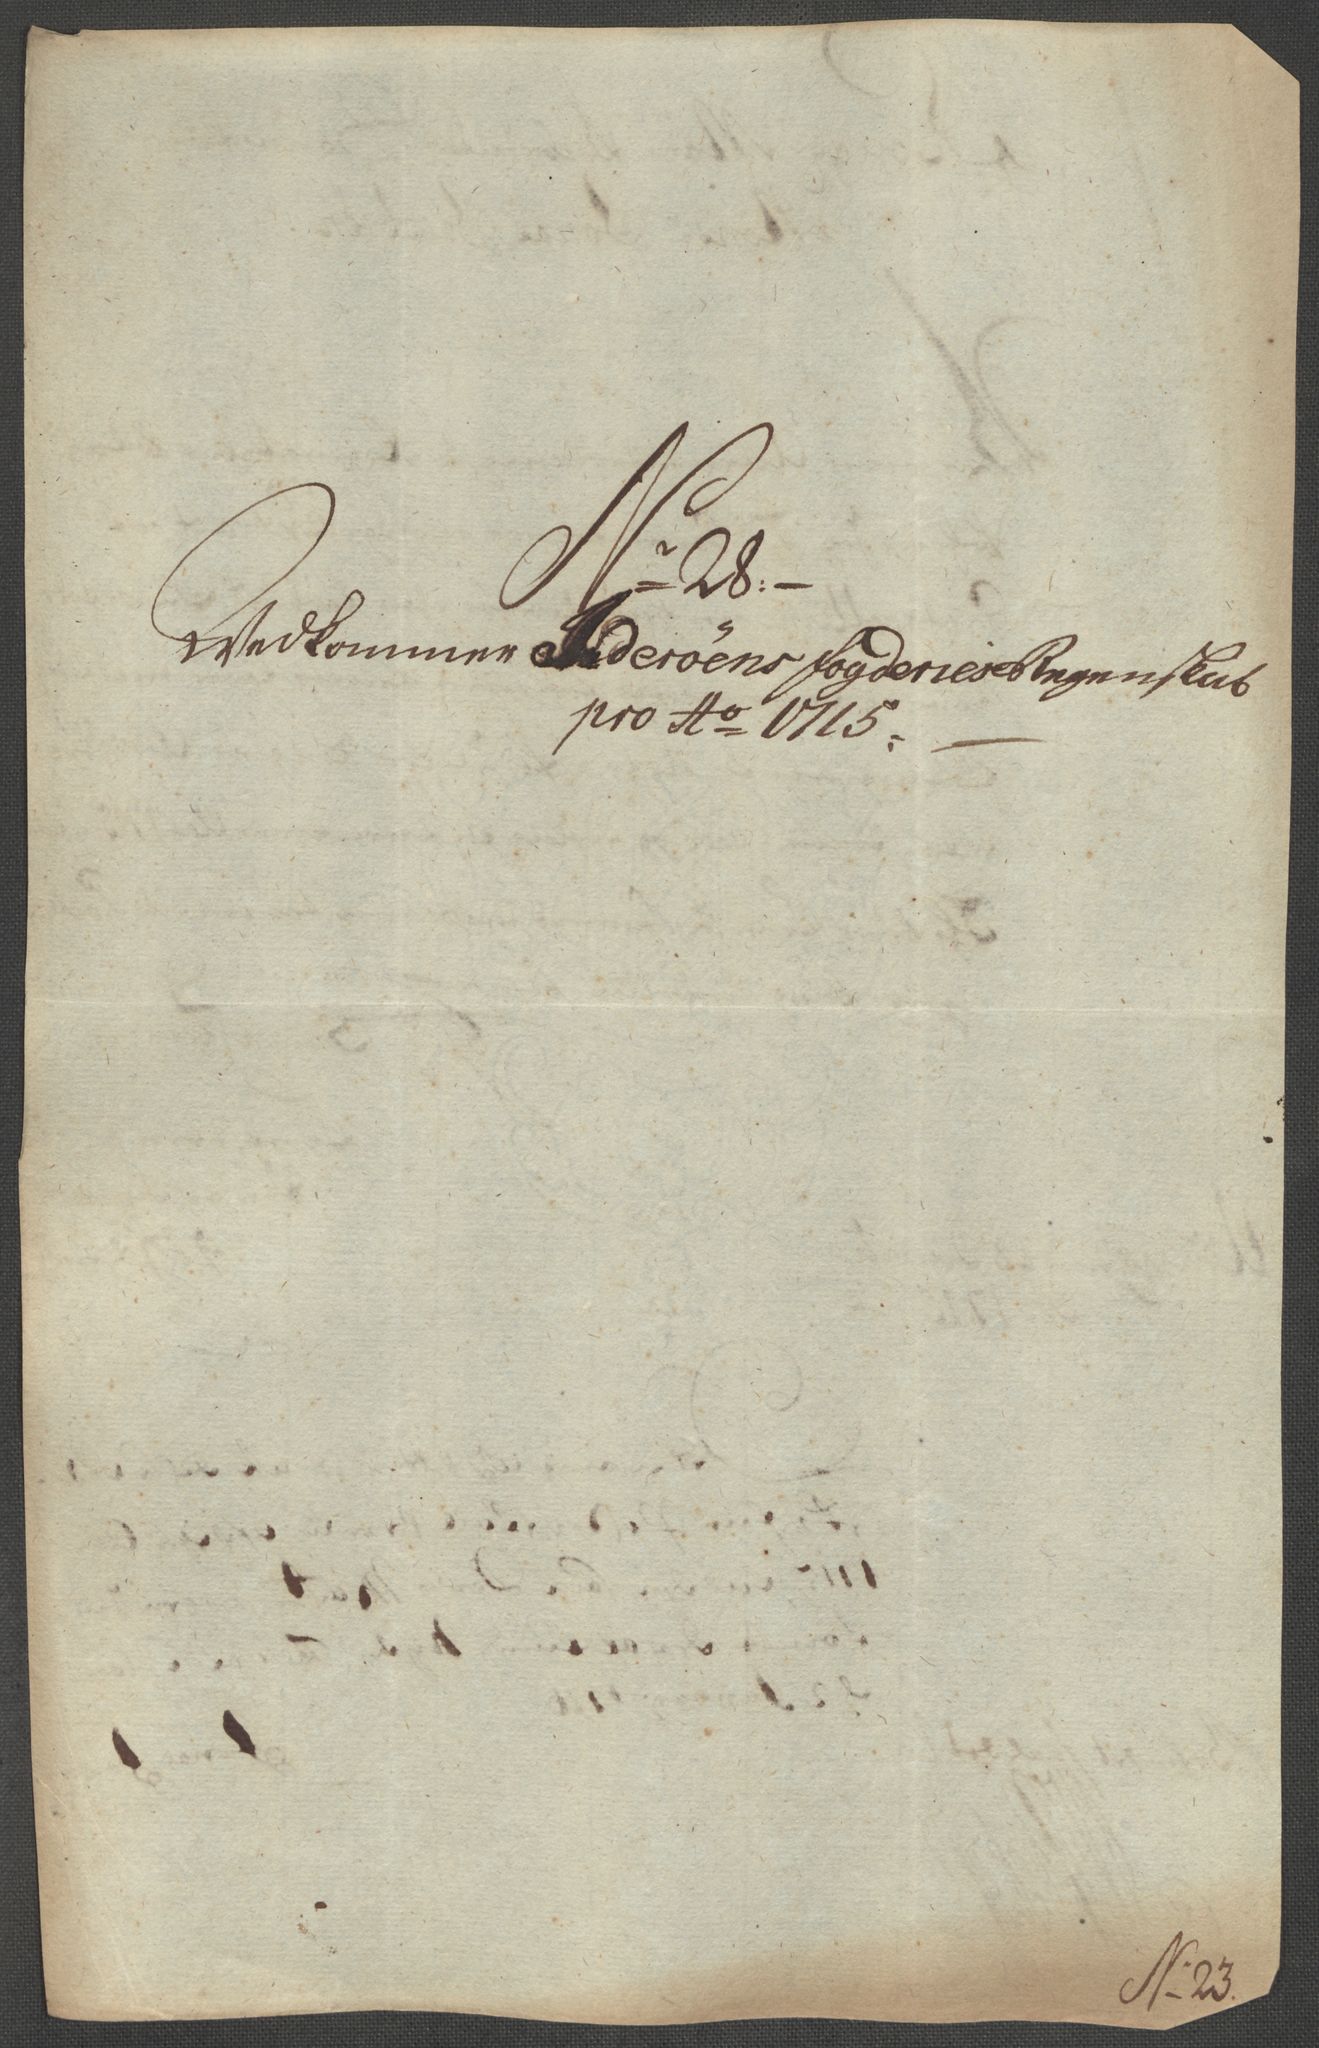 Nr 28.
Vedkommer Inderöens fogderies Regenskab
pro Ao 1715.
N: 23.